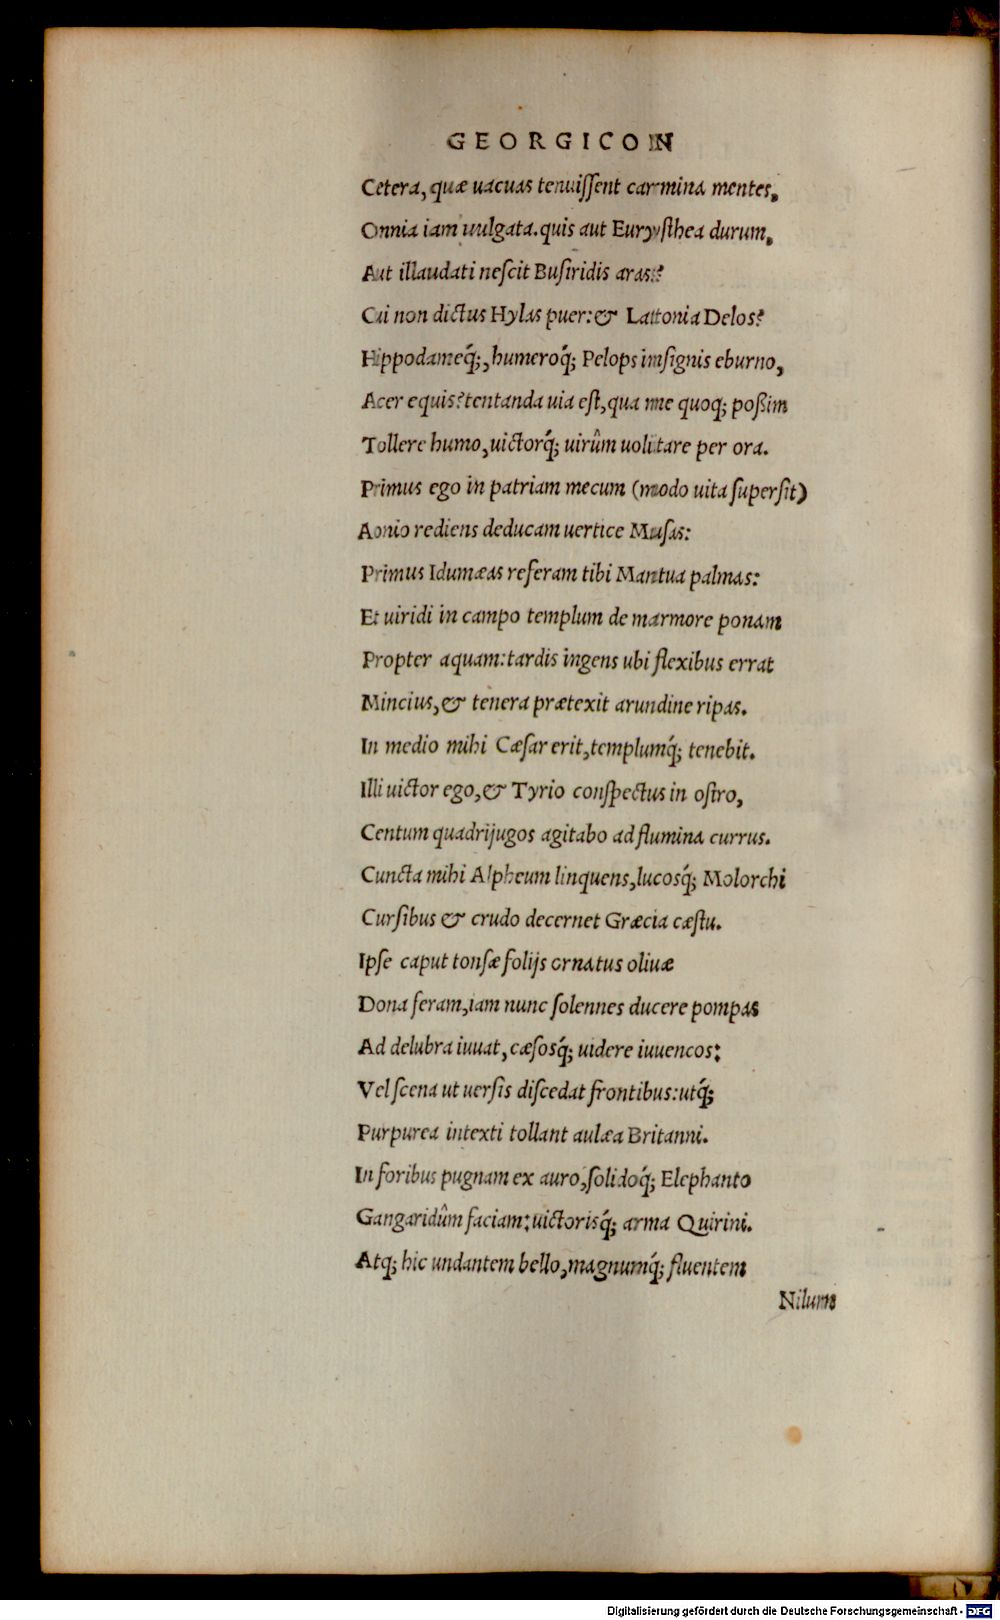 GEORGICON
Cetera, quæ uacuas tenuiſſent carmina mentes,
Omnia iam uulgata. quis aut Euryſthea durum,
Aut illaudati neſcit Buſiridis aras?
Cui non dictus Hylas puer: & Latonia Delos?
Hippodameq́;, humeroq́; Pelops inſignis eburno,
Acer equis? tentanda uia eſt, qua me quoq; poßim
Tollere humo, uictorq́; uirûm uolitare per ora.
Primus ego in patriam mecum (modo uita ſuperſit)
Aonio rediens deducam uertice Muſas:
Primus Idumæas referam tibi Mantua palmas:
Et uiridi in campo templum de marmore ponam
Propter aquam: tardis ingens ubi flexibus errat
Mincius, & tenera prætexit arundine ripas.
In medio mihi Cæſar erit, templumq́; tenebit.
Illi uictor ego, & Tyrio conſpectus in oſtro,
Centum quadrijugos agitabo ad flumina currus.
Cuncta mihi Alpheum linquens, lucosq́; Molorchi
Curſibus & crudo decernet Græcia cæſtu.
Ipſe caput tonſæ folijs ornatus oliuæ
Dona feram, iam nunc ſolennes ducere pompas
Ad delubra iuuat, cæſosq́; uidere iuuencos:
Vel ſcena ut uerſis diſcedat frontibus: utq́;
Purpurea intexti tollant aulæa Britanni.
In foribus pugnam ex auro, ſolidoq́; Elephanto
Gangaridûm faciam: uictorisq́; arma Quirini.
Atq; hic undantem bello, magnumq́; fluentem
Nilum
Digitalisierung gefördert durch die Deutsche Forschungsgemeinschaft - DFG